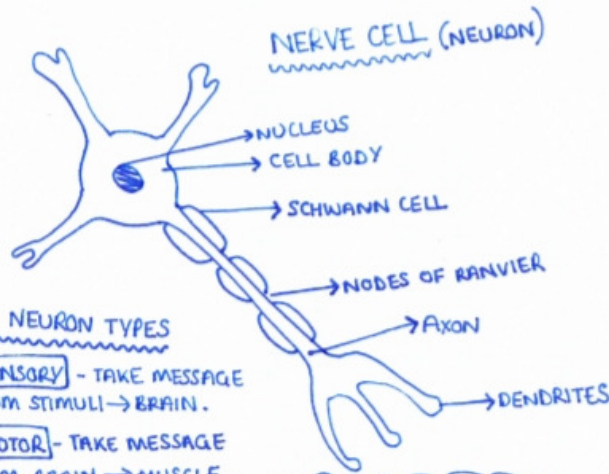 NERVE CELL (NEURON)
NUCLEUS
CELL BODY
SCHWANN CELL
NODES OF RANVIER
AXON
DENDRITES
NEURON TYPES
NSORY - TAKE MESSAGE
OM STIMULI → BRAIN.
OTOR - TAKE MESSAGE
BRAIN → MUSCLE